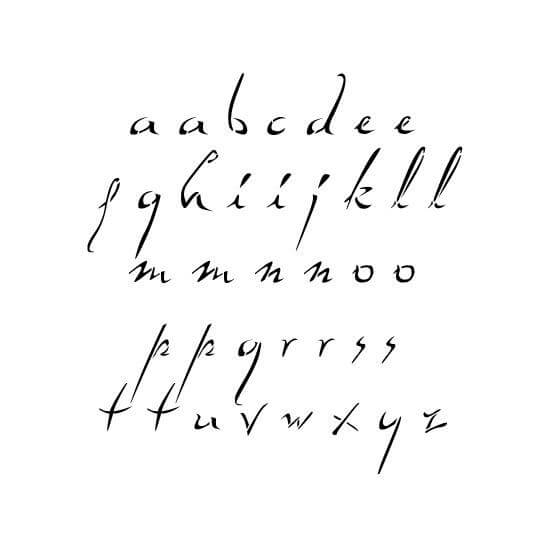 a a b c d e e
f g h i i j k l l
m m n n o o
p p q r r s s
t t u v w x y z